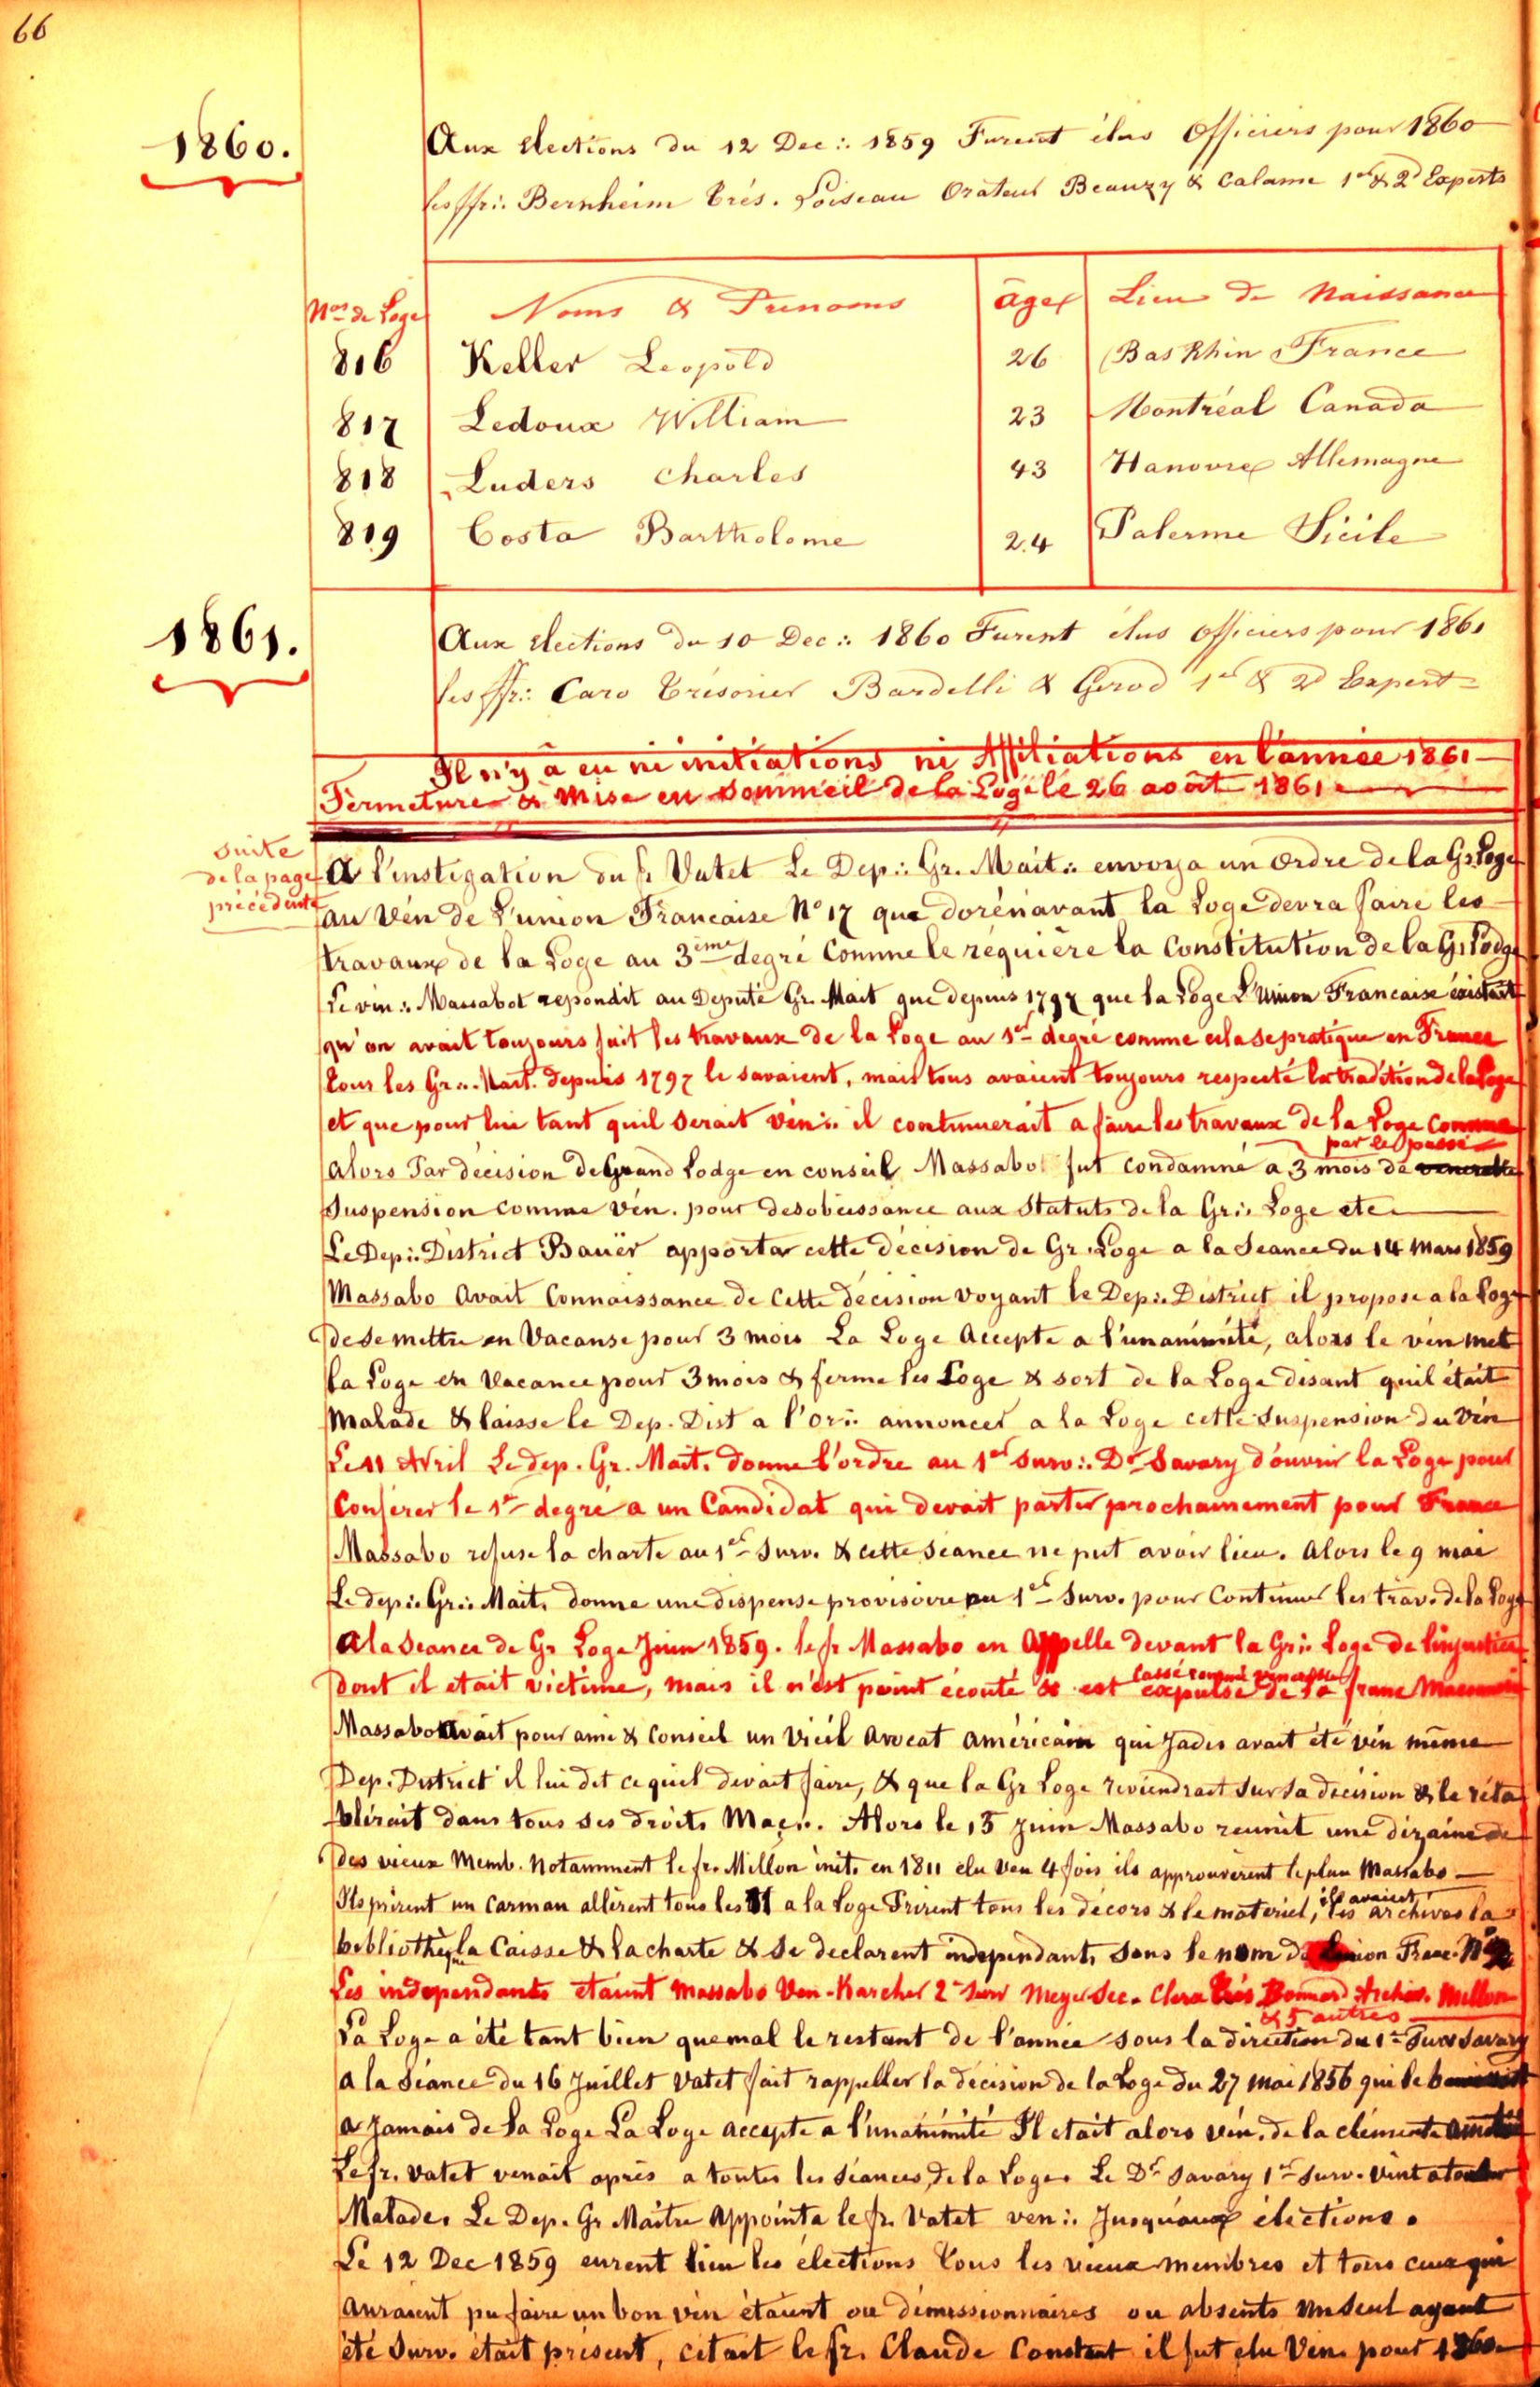 66
1860.
Aux elections du 12 Dec∴ 1859 Furent élus Officiers pour 1860
les ffr∴ Bernheim Trés. Loiseau Orateur Beauzy & Calame 1er & 2d Experts
Nos de Loge Noms & Prenoms âge Lieu de Naissance
816 Keller Leopold 26 Bas Rhin France
817 Ledoux William 23 Montréal Canada
818 Luders Charles 43 Hanovre Allemagne
819 Costa Bartholome 24 Palerme Sicile
1861.
Aux elections du 10 Dec∴ 1860 Furent élus officiers pour 1861
les ffr∴ Caro Trésorier Bardelli & Gerod 1er & 2d Expert
Il n'y â eu ni initiations ni Affiliations en l'année 1861
Fermeture & mise en sommeil de la Loge le 26 août 1861
suite
de la page
précédente
A l'instigation du fr Vatet Le Dep∴ Gr. Mait∴ envoya un Ordre de la Gr. Loge
au Vén de L'union Francaise No 17 que dorénavant la Loge devra faire les
travaux de la Loge au 3ème degré Comme le réquière la Constitution de la Gr Lodge
Le vén∴ Massabot repondit au Deputé Gr. Mait que depuis 1797 que la Loge L'Union Francaise éxistait
qu'on avait toujours fait les travaux de la Loge au 1er degré comme cela se pratique en France
tous les Gr∴ Mait. depuis 1797 le savaient, mais tous avaient toujours respecté la tradition de la Loge
et que pour lui tant quil serait vén∴ il continuerait a faire les travaux de la Loge Comme
par le passé
Alors Par décision de Grand Lodge en conseil Massabo fut condamné a 3 mois de venerable
Suspension comme vén. pour desobeissance aux Statuts de la Gr∴ Loge etc
Le Dep∴ District Bauër apporta cette décision de Gr. Loge a la Seance du 14 Mars 1859
Massabo Avait Connaissance de Cette décision voyant le Dep∴ District il propose a la Loge
de se mettre en Vacanse pour 3 mois La Loge Accepte a l'unanimité, alors le vén met
la Loge en Vacance pour 3 mois & ferme les Loge & sort de la Loge disant quil était
Malade & laisse le Dep. Dist a l'or∴ annoncer a la Loge cette Suspension du Vén
Le 11 Avril Le dep. Gr. Mait. donne l'ordre au 1er surv∴ Dr Savary d'ouvrir la Loge pour
Conférer le 1er degré a un Candidat qui devait partir prochainement pour France
Massabo refuse la charte au 1er Surv. & cette séance ne put avoir lieu. Alors le 9 mai
Le dep∴ Gr∴ Mait. donne une dispense provisoire au 1er Surv. pour Continuer les trav. de la Loge
A la Séance de Gr Loge Juin 1859. le fr Massabo en Appelle devant la Gr∴ Loge de linjustice
Dont il etait victime, mais il n'est point écouté & est expulsé de la franc
Cassé comme venerable
Massabot Avait pour ami & Conseil un Vieil Avocat américain qui Jadis avait été vén même
Dep. District il lui dit ce quil devait faire, & que la Gr Loge reviendrait sur sa décision & le réta
blirait dans tous ses droits Maçn∴. Alors le 15 Juin Massabo reunit une dizaine de
des vieux Memb. Notamment le fr. Millon init. en 1811 élu Ven 4 fois ils approuvèrent le plan Massabo
Ils prirent un Carman allèrent tous les 11 a la Loge Prirent tous les décors & le matériel, les archives la
ils avaient
bibliothèque la Caisse & la charte & se declarent indépendants sous le nom de Union Franc.
Les independants etaient Massabo Ven. Karcher 2d Surv Meyer Sec. Clerc Trés Bonnard Archiv. Millon
& 5 autres
La Loge a été tant bien que mal le restant de l'année sous la direction du 1er Surv Savary
A la Séance du 16 Juillet Vatet fait rappeller la décision de la Loge du 27 mai 1856 qui le
a Jamais de la Loge La Loge accepte a l'unanimité Il etait alors vén. de la clémente amitié
Le fr. Vatet venait après a toutes les Séances de la Loge. Le Dr Savary 1er Surv. Vint a tomber
Malade. Le Dep. Gr Maître Appointa le fr. Vatet ven∴ Jusqu'aux élections.
Le 12 Dec 1859 eurent lieu les élections Tous les vieux membres et tous ceux qui
Auraient pu faire un bon vén étaient ou démissionnaires ou absents Un seul ayant
été Surv. était présent, c'etait le fr. Claude Constant il fut élu Ven. pour 1860